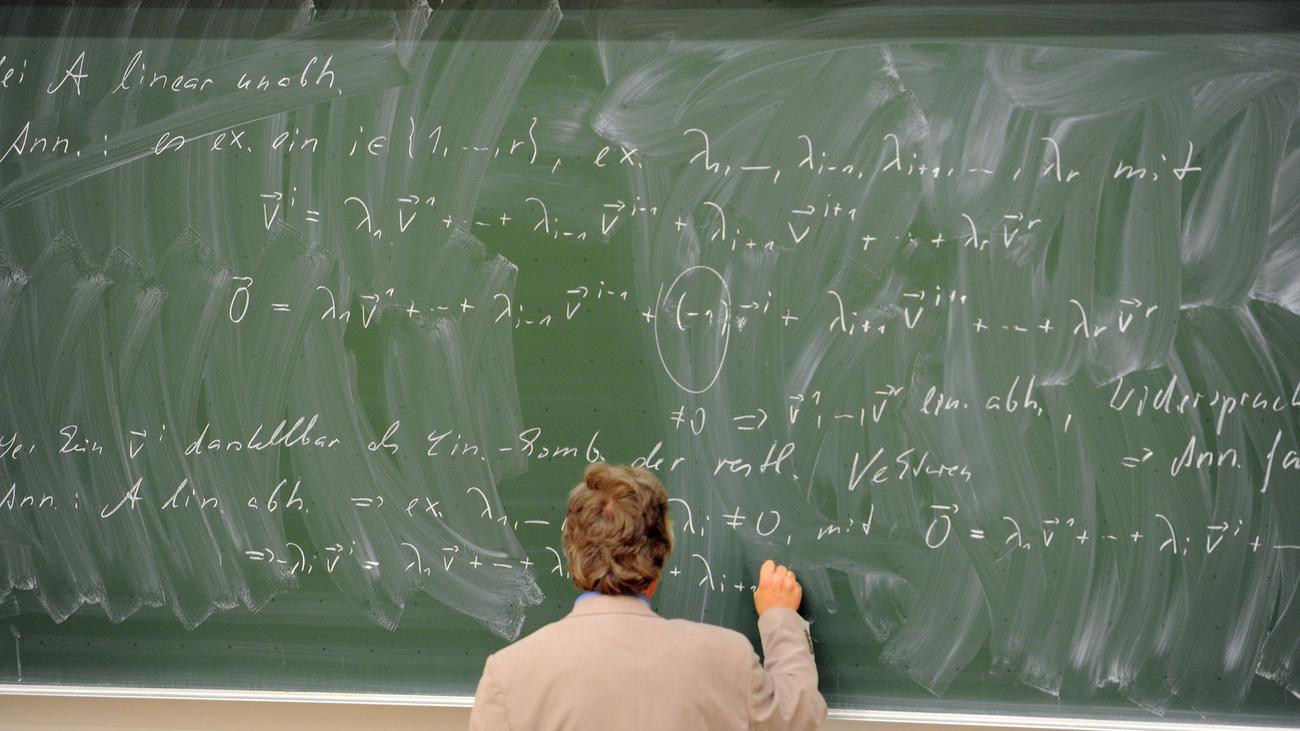 ei A linear unabh.
Ann.: es ex. ein i ∈ {1, ..., r}, ex. λ₁, –, λᵢ₋₁, λᵢ₊₁, –, λᵣ mit
v⃗ⁱ = λ₁ v⃗¹ + – + λᵢ₋₁ v⃗ⁱ⁻¹ + λᵢ₊₁ v⃗ⁱ⁺¹ + – + λᵣ v⃗ʳ
0⃗ = λ₁ v⃗¹ + – + λᵢ₋₁ v⃗ⁱ⁻¹ + (-1) v⃗ⁱ + λᵢ₊₁ v⃗ⁱ⁺¹ + – + λᵣ v⃗ʳ
≠0 => v⃗¹, –, v⃗ʳ lin. abh., Widerspruch
=> Ann. fa
Sei kein v⃗ⁱ darstellbar als Lin.-Komb. der restl. Vektoren
Ann.: A lin. abh. => ex. λ₁, – λᵢ ≠ 0, mit 0⃗ = λ₁ v⃗¹ + – + λᵢ v⃗ⁱ + –
=> -λᵢ v⃗ⁱ = λ₁ v⃗¹ + – + λᵢ + λᵢ₊₁